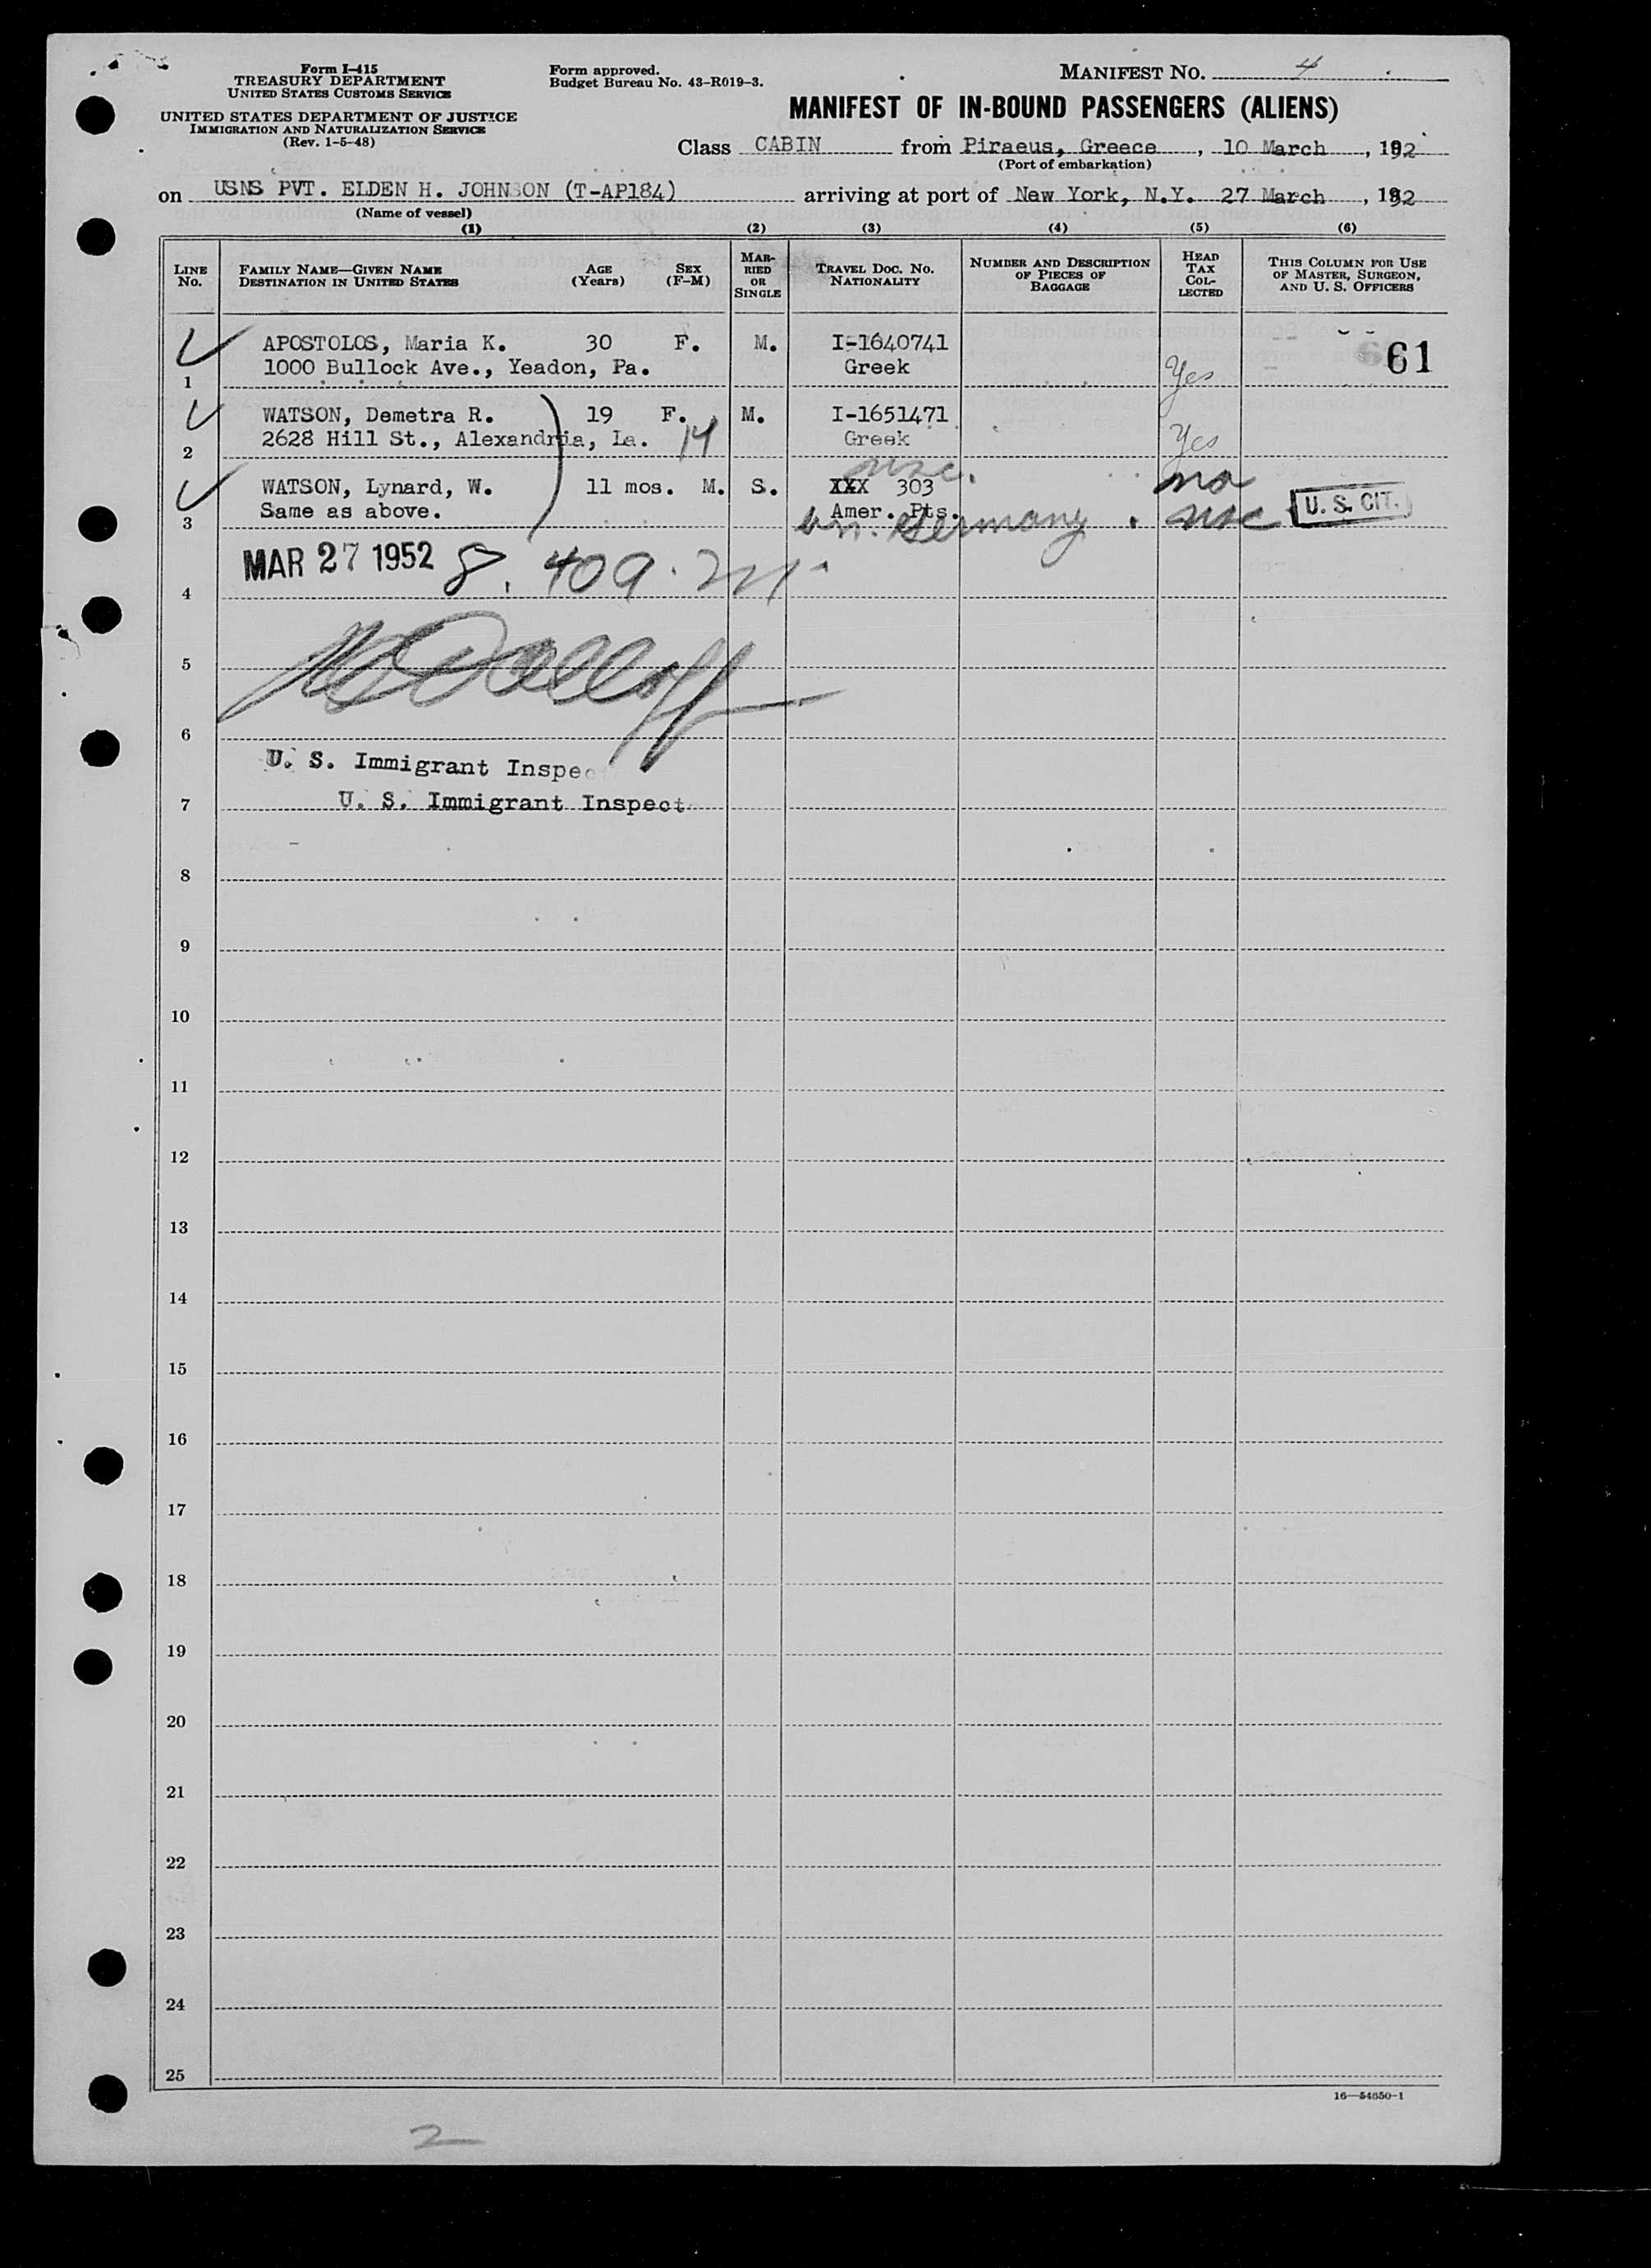 Form I-415
TREASURY DEPARTMENT
UNITED STATES CUSTOMS SERVICE
UNITED STATES DEPARTMENT OF JUSTICE
IMMIGRATION AND NATURALIZATION SERVICE
(Rev. 1-5-48)
Form approved.
Budget Bureau No. 43-R019-3.
MANIFEST NO. 4
MANIFEST OF IN-BOUND PASSENGERS (ALIENS)
Class CABIN from Piraeus, Greece, 10 March, 192
(Port of embarkation)
on USNS PVT. ELDEN H. JOHNSON (T-AP184) arriving at port of New York, N.Y. 27 March, 192
(Name of vessel)
(1) (2) (3) (4) (5) (6)
LINE No. FAMILY NAME—GIVEN NAME DESTINATION IN UNITED STATES AGE (Years) SEX (F-M) MARRIED OR SINGLE TRAVEL DOC. NO. NATIONALITY NUMBER AND DESCRIPTION OF PIECES OF BAGGAGE HEAD TAX COLLECTED THIS COLUMN FOR USE OF MASTER, SURGEON, AND U. S. OFFICERS
APOSTOLOS, Maria K. 30 F. M. I-1640741 61
1 1000 Bullock Ave., Yeadon, Pa. Greek Yes
WATSON, Demetra R. 19 F. M. I-1651471
2 2628 Hill St., Alexandria, La. 14 Greek Yes
usc.
WATSON, Lynard, W. 11 mos. M. S. XXX 303 no
3 Same as above. Amer. Pts. usc U. S. CIT.
Germany
MAR 27 1952 8. 409.
4
5
6
U. S. Immigrant Inspec
7 U. S. Immigrant Inspect
8
9
10
11
12
13
14
15
16
17
18
19
20
21
22
23
24
25
16—54650-1
2